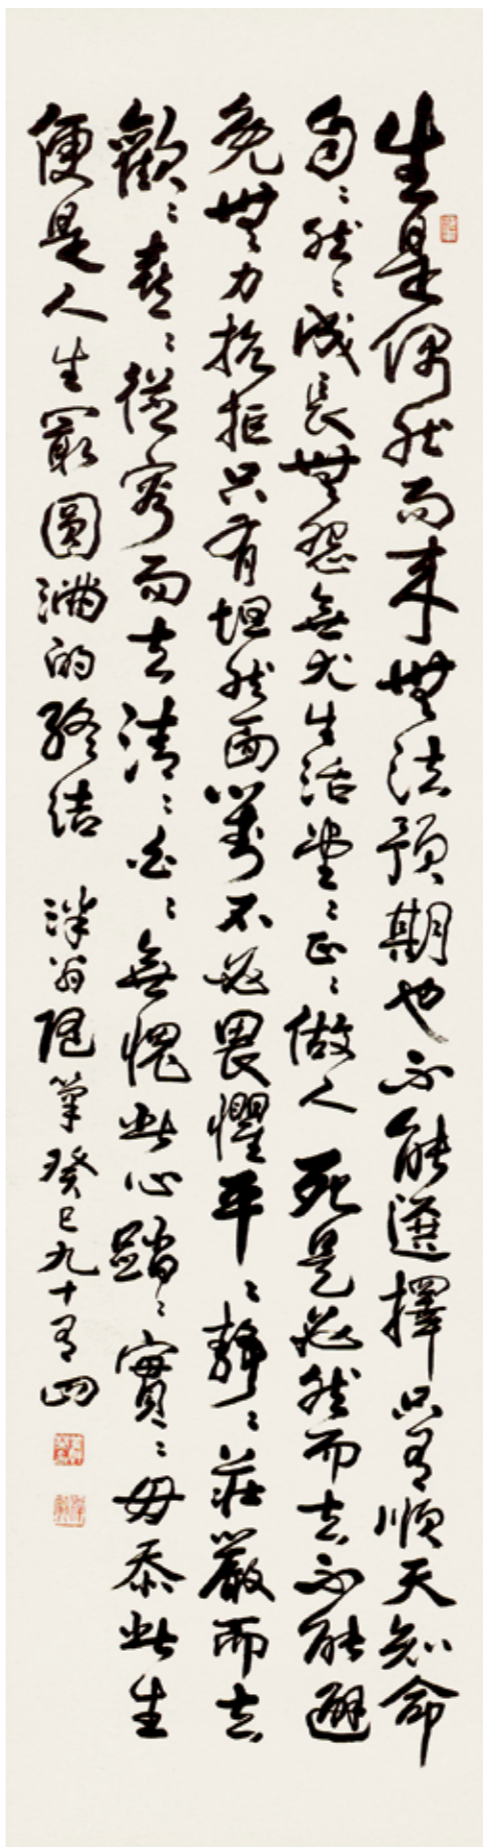 生是偶然而來無法預期也不能選擇只有順天知命
自々然々成長無怨無尤生活堂々正々做人死是必然而去不能避
免無力抗拒只有坦然面對不必畏懼平々靜々莊嚴而去
歡々喜々從容而去清々白々無愧此心踏々實々毋忝此生
便是人生最圓滿的終結 洋翁隨筆癸巳九十有四